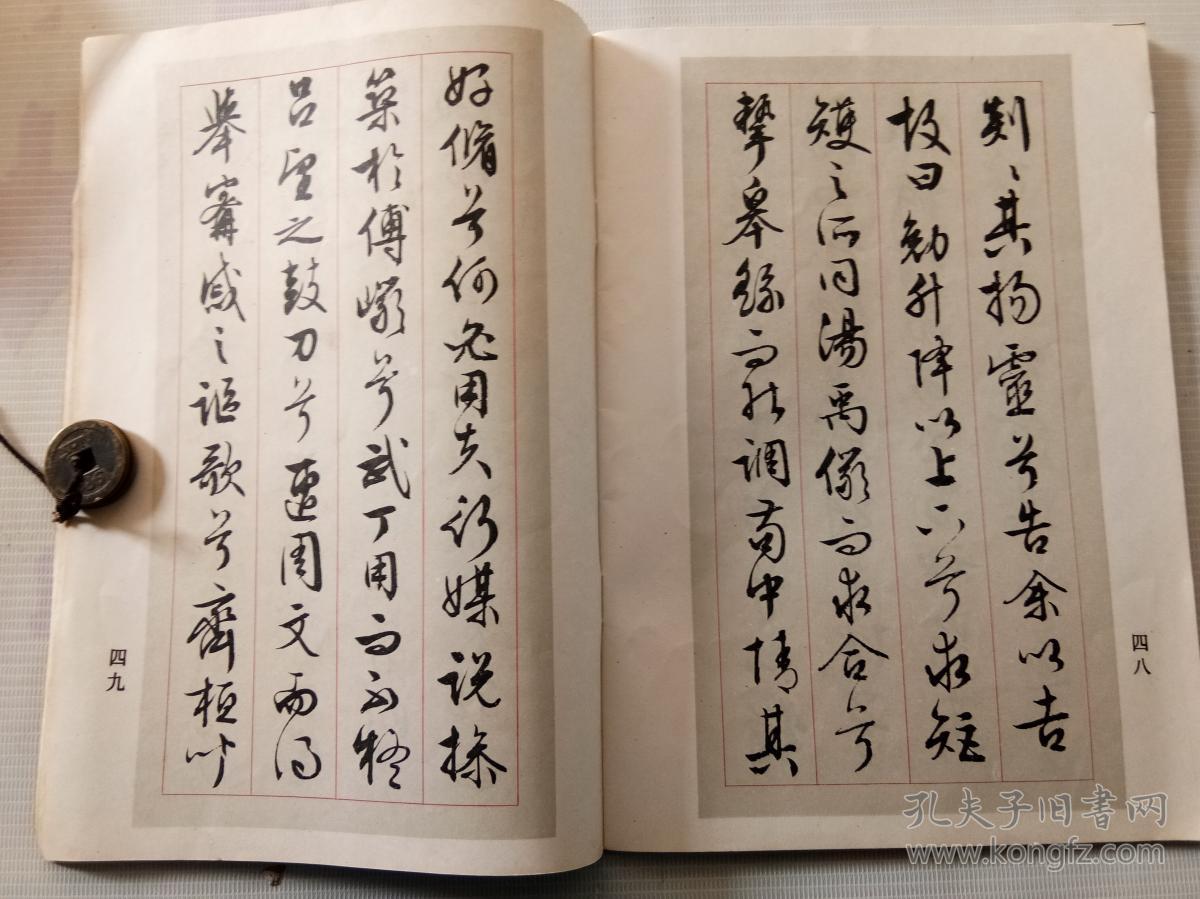 剡〻其揚靈兮告余以吉
故曰勉升降以上下兮求矩
矱之所同湯禹儼而求合兮
摯皋繇而能調苟中情其
四八
好脩兮何必用夫行媒說操
築於傅巖兮武丁用而不疑
呂望之鼓刀兮遭周文而得
舉甯戚之謳歌兮齊桓聞
四九
孔夫子旧書网
www.kongfz.com